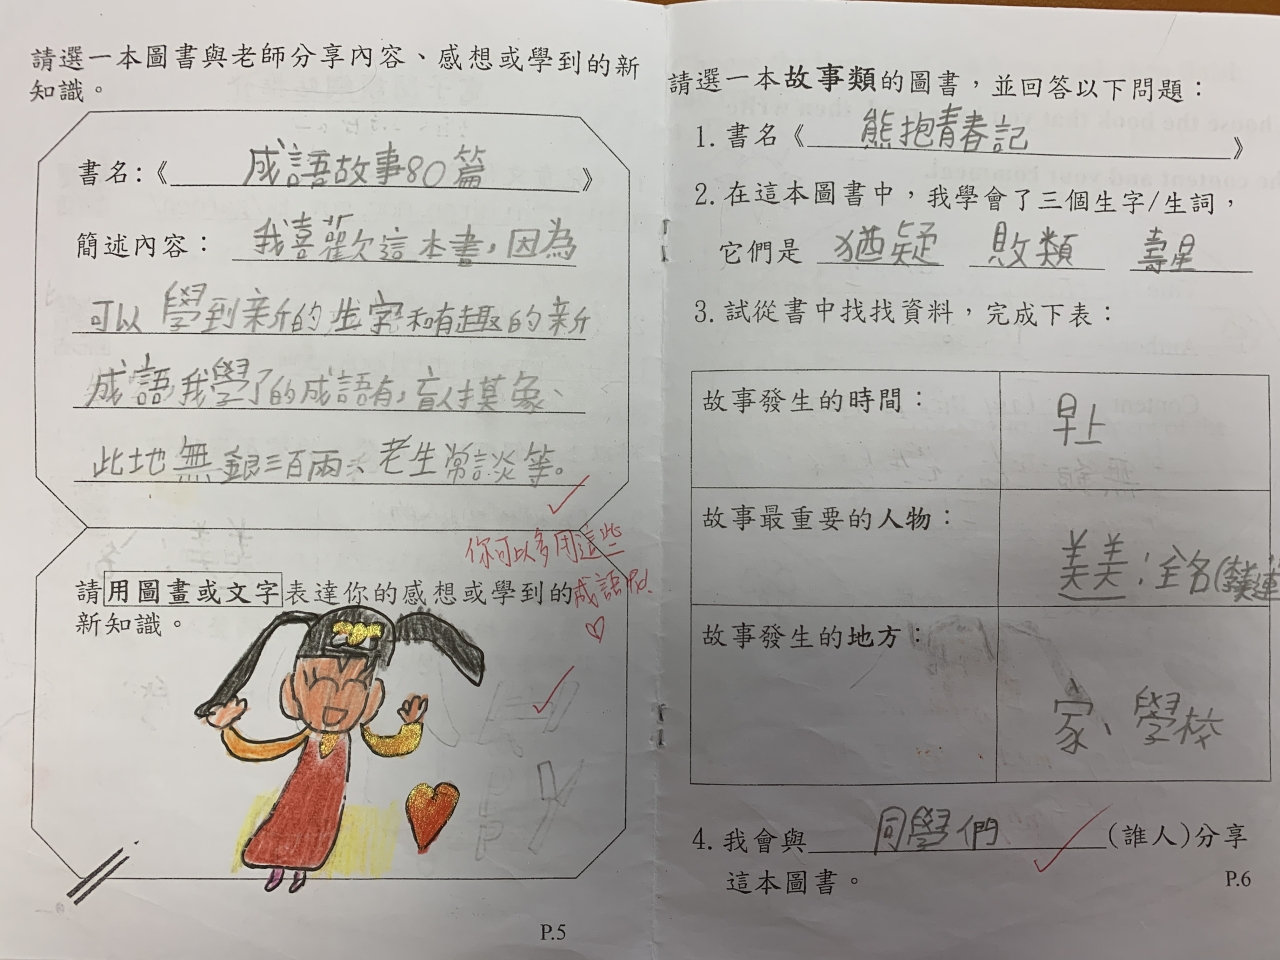 請選一本圖書與老師分享內容、感想或學到的新
知識。
書名:《成語故事80篇》
簡述內容：我喜歡這本書，因為
可以學到新的生字和有趣的新
成語,我學了的成語有,盲人摸象、
此地無銀三百兩、老生常談等。
你可以多用這些
成語
請用圖畫或文字表達你的感想或學到的
新知識。
P.5
請選一本故事類的圖書，並回答以下問題：
1. 書名《熊抱青春記》
2. 在這本圖書中，我學會了三個生字/生詞，
它們是 猶疑 敗類 壽星
3. 試從書中找找資料，完成下表：
故事發生的時間：早上
故事最重要的人物：美美：全名(美連
故事發生的地方：家、學校
4. 我會與同學們(誰人)分享
這本圖書。
P.6